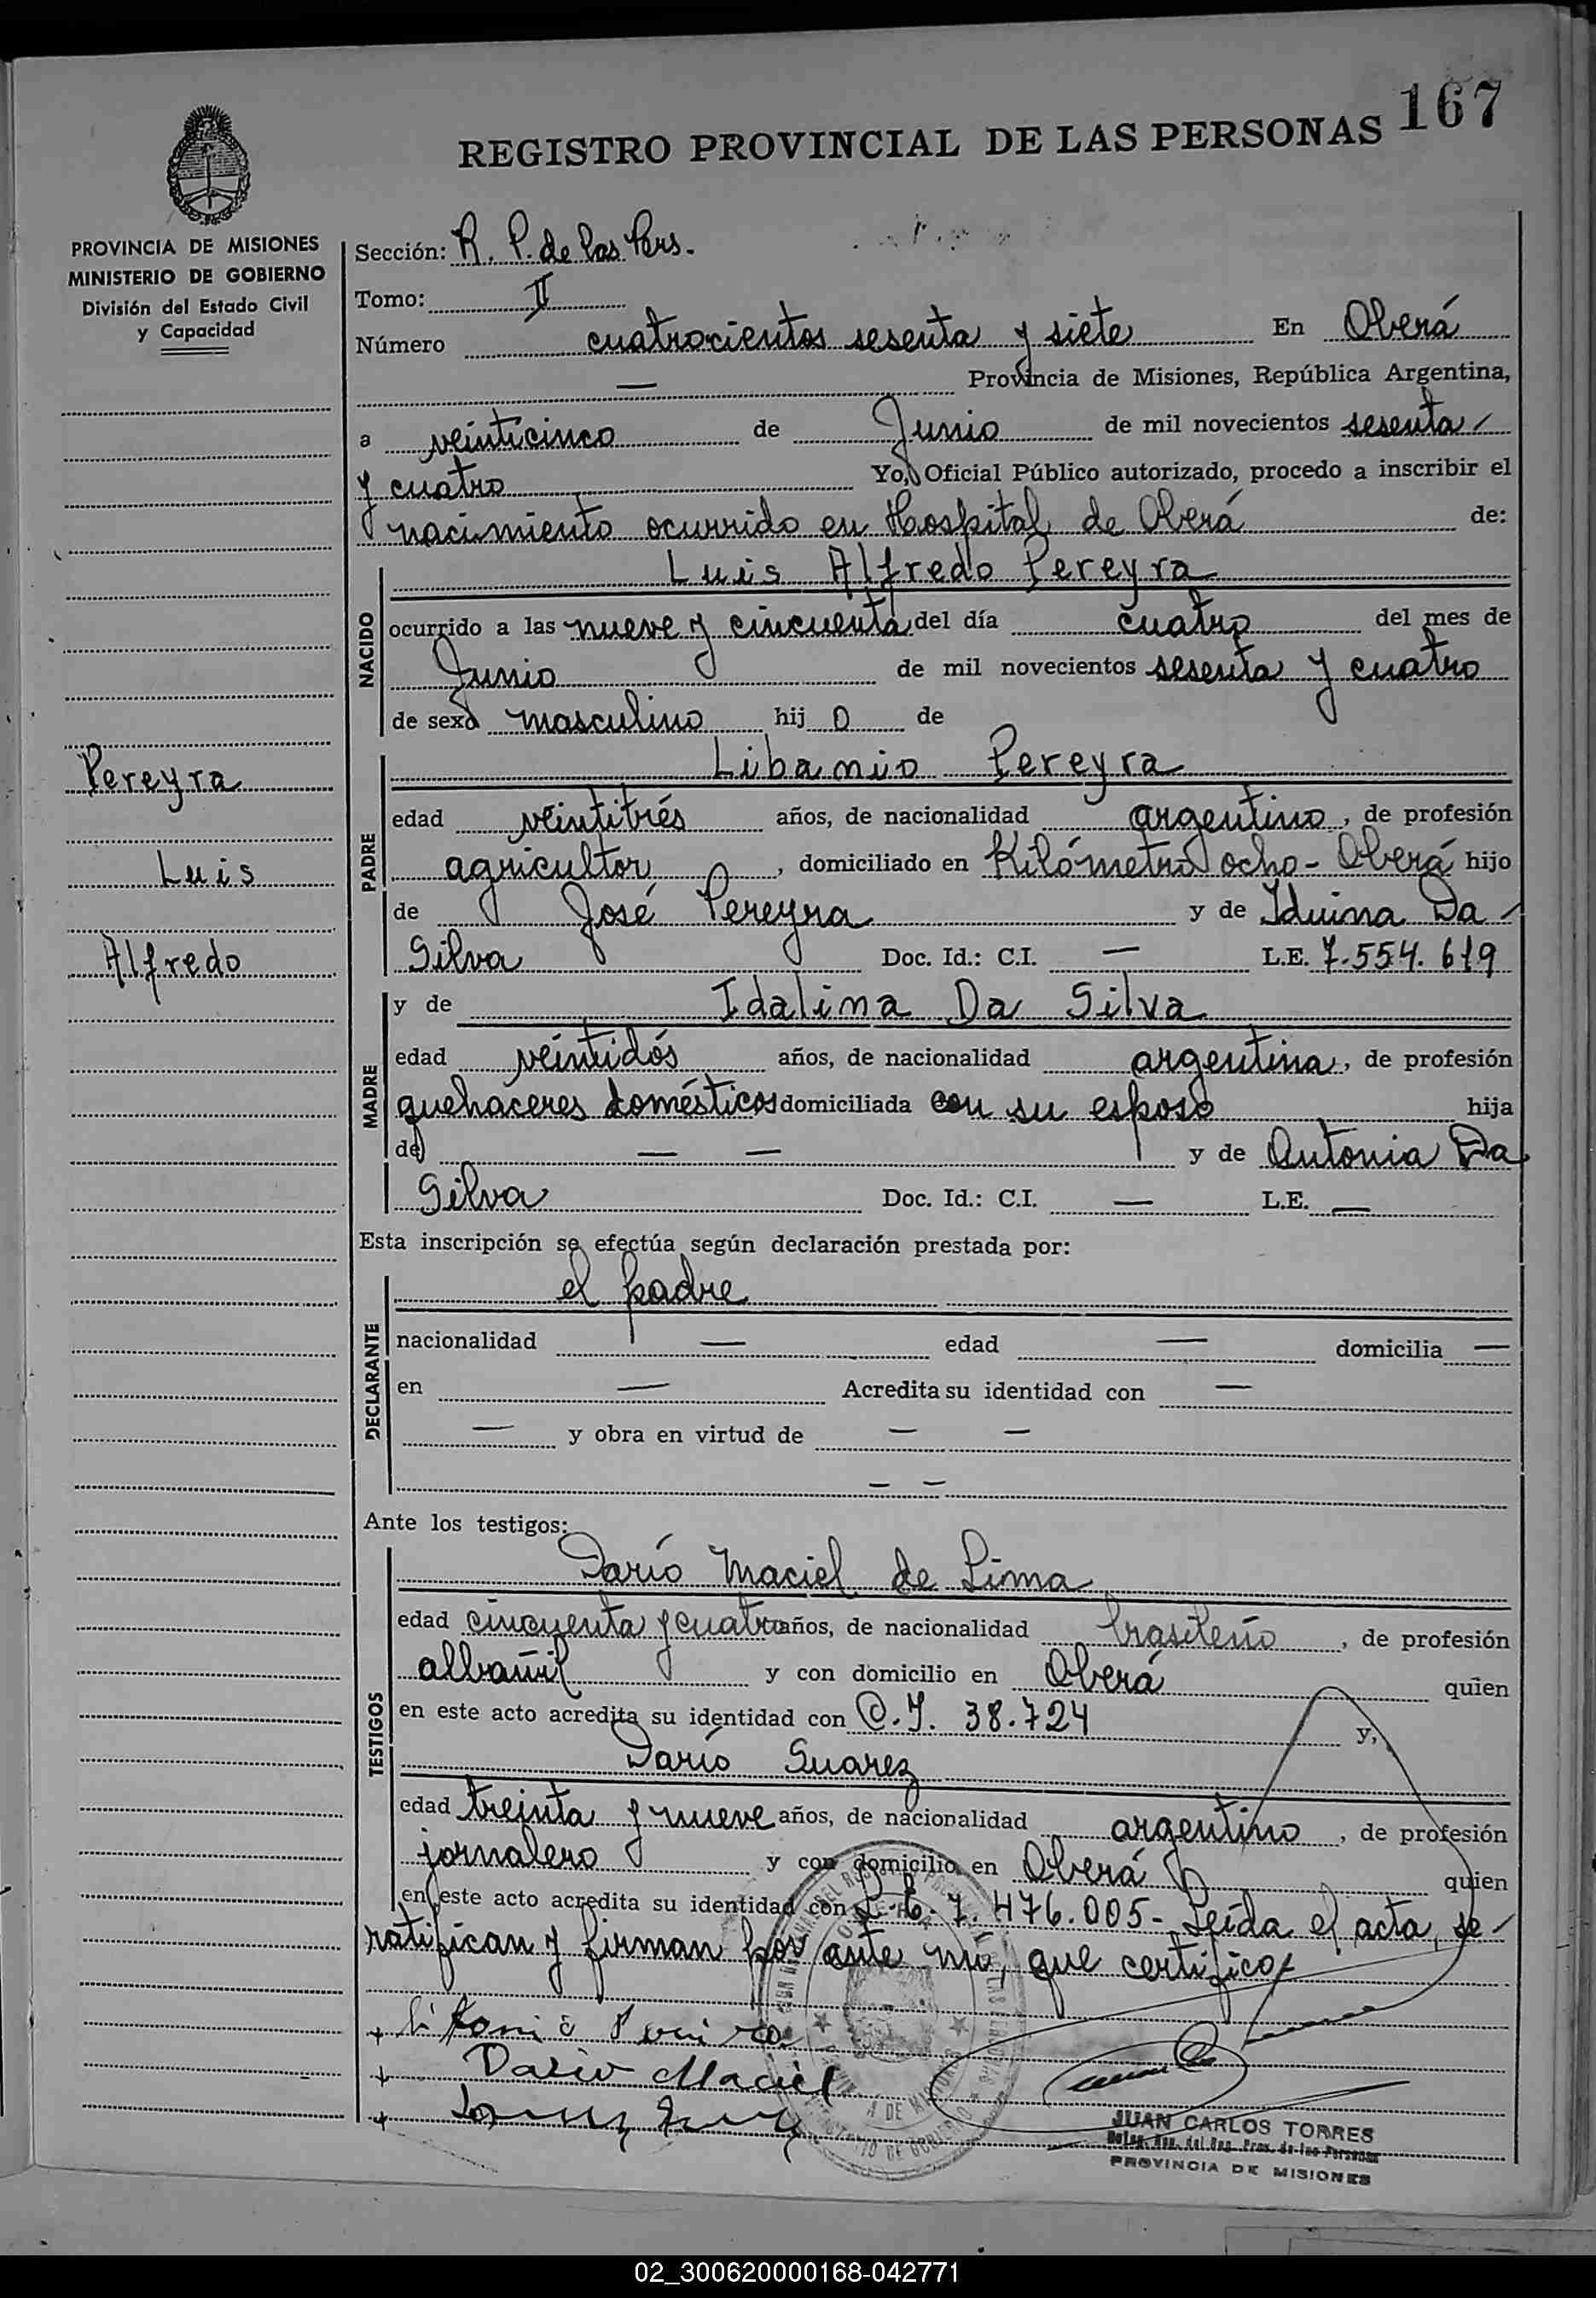 167
REGISTRO PROVINCIAL DE LAS PERSONAS
PROVINCIA DE MISIONES
MINISTERIO DE GOBIERNO
División del Estado Civil
y Capacidad
Pereyra
Luis
Alfredo
Sección: R. P. de las Pers.
Tomo: II
Número cuatrocientos sesenta y siete En Oberá
— Provincia de Misiones, República Argentina,
a veinticinco de Junio de mil novecientos sesenta
y cuatro Yo, Oficial Público autorizado, procedo a inscribir el
nacimiento ocurrido en Hospital de Oberá de:
NACIDO
Luis Alfredo Pereyra
ocurrido a las nueve y cincuenta del día cuatro del mes de
Junio de mil novecientos sesenta y cuatro
de sexo masculino hijo de
PADRE
Libanio Pereyra
edad veintitrés años, de nacionalidad argentino, de profesión
agricultor, domiciliado en Kilómetro ocho - Oberá hijo
de José Pereyra y de Iduina Da
Silva Doc. Id.: C.I. — L.E. 7.554.619
MADRE
y de Idalina Da Silva
edad veintidós años, de nacionalidad argentina, de profesión
quehaceres domésticos domiciliada con su esposo hija
de — — y de Antonia Da
Silva Doc. Id.: C.I. — L.E. —
Esta inscripción se efectúa según declaración prestada por:
DECLARANTE
el padre
nacionalidad — edad — domicilia —
en — Acredita su identidad con —
— y obra en virtud de — —
— —
Ante los testigos:
TESTIGOS
Darío Maciel de Lima
edad cincuenta y cuatro años, de nacionalidad brasileño, de profesión
albañil y con domicilio en Oberá quien
en este acto acredita su identidad con C.I. 38.724 y,
Darío Suarez
edad treinta y nueve años, de nacionalidad argentino, de profesión
jornalero y con domicilio en Oberá quien
en este acto acredita su identidad con L.E. 7.476.005- Leída el acta, se
ratifican y firman por ante mí, que certifico
Dario Maciel
JUAN CARLOS TORRES
Deleg. del Reg. Prov. de las Personas
PROVINCIA DE MISIONES
02_300620000168-042771